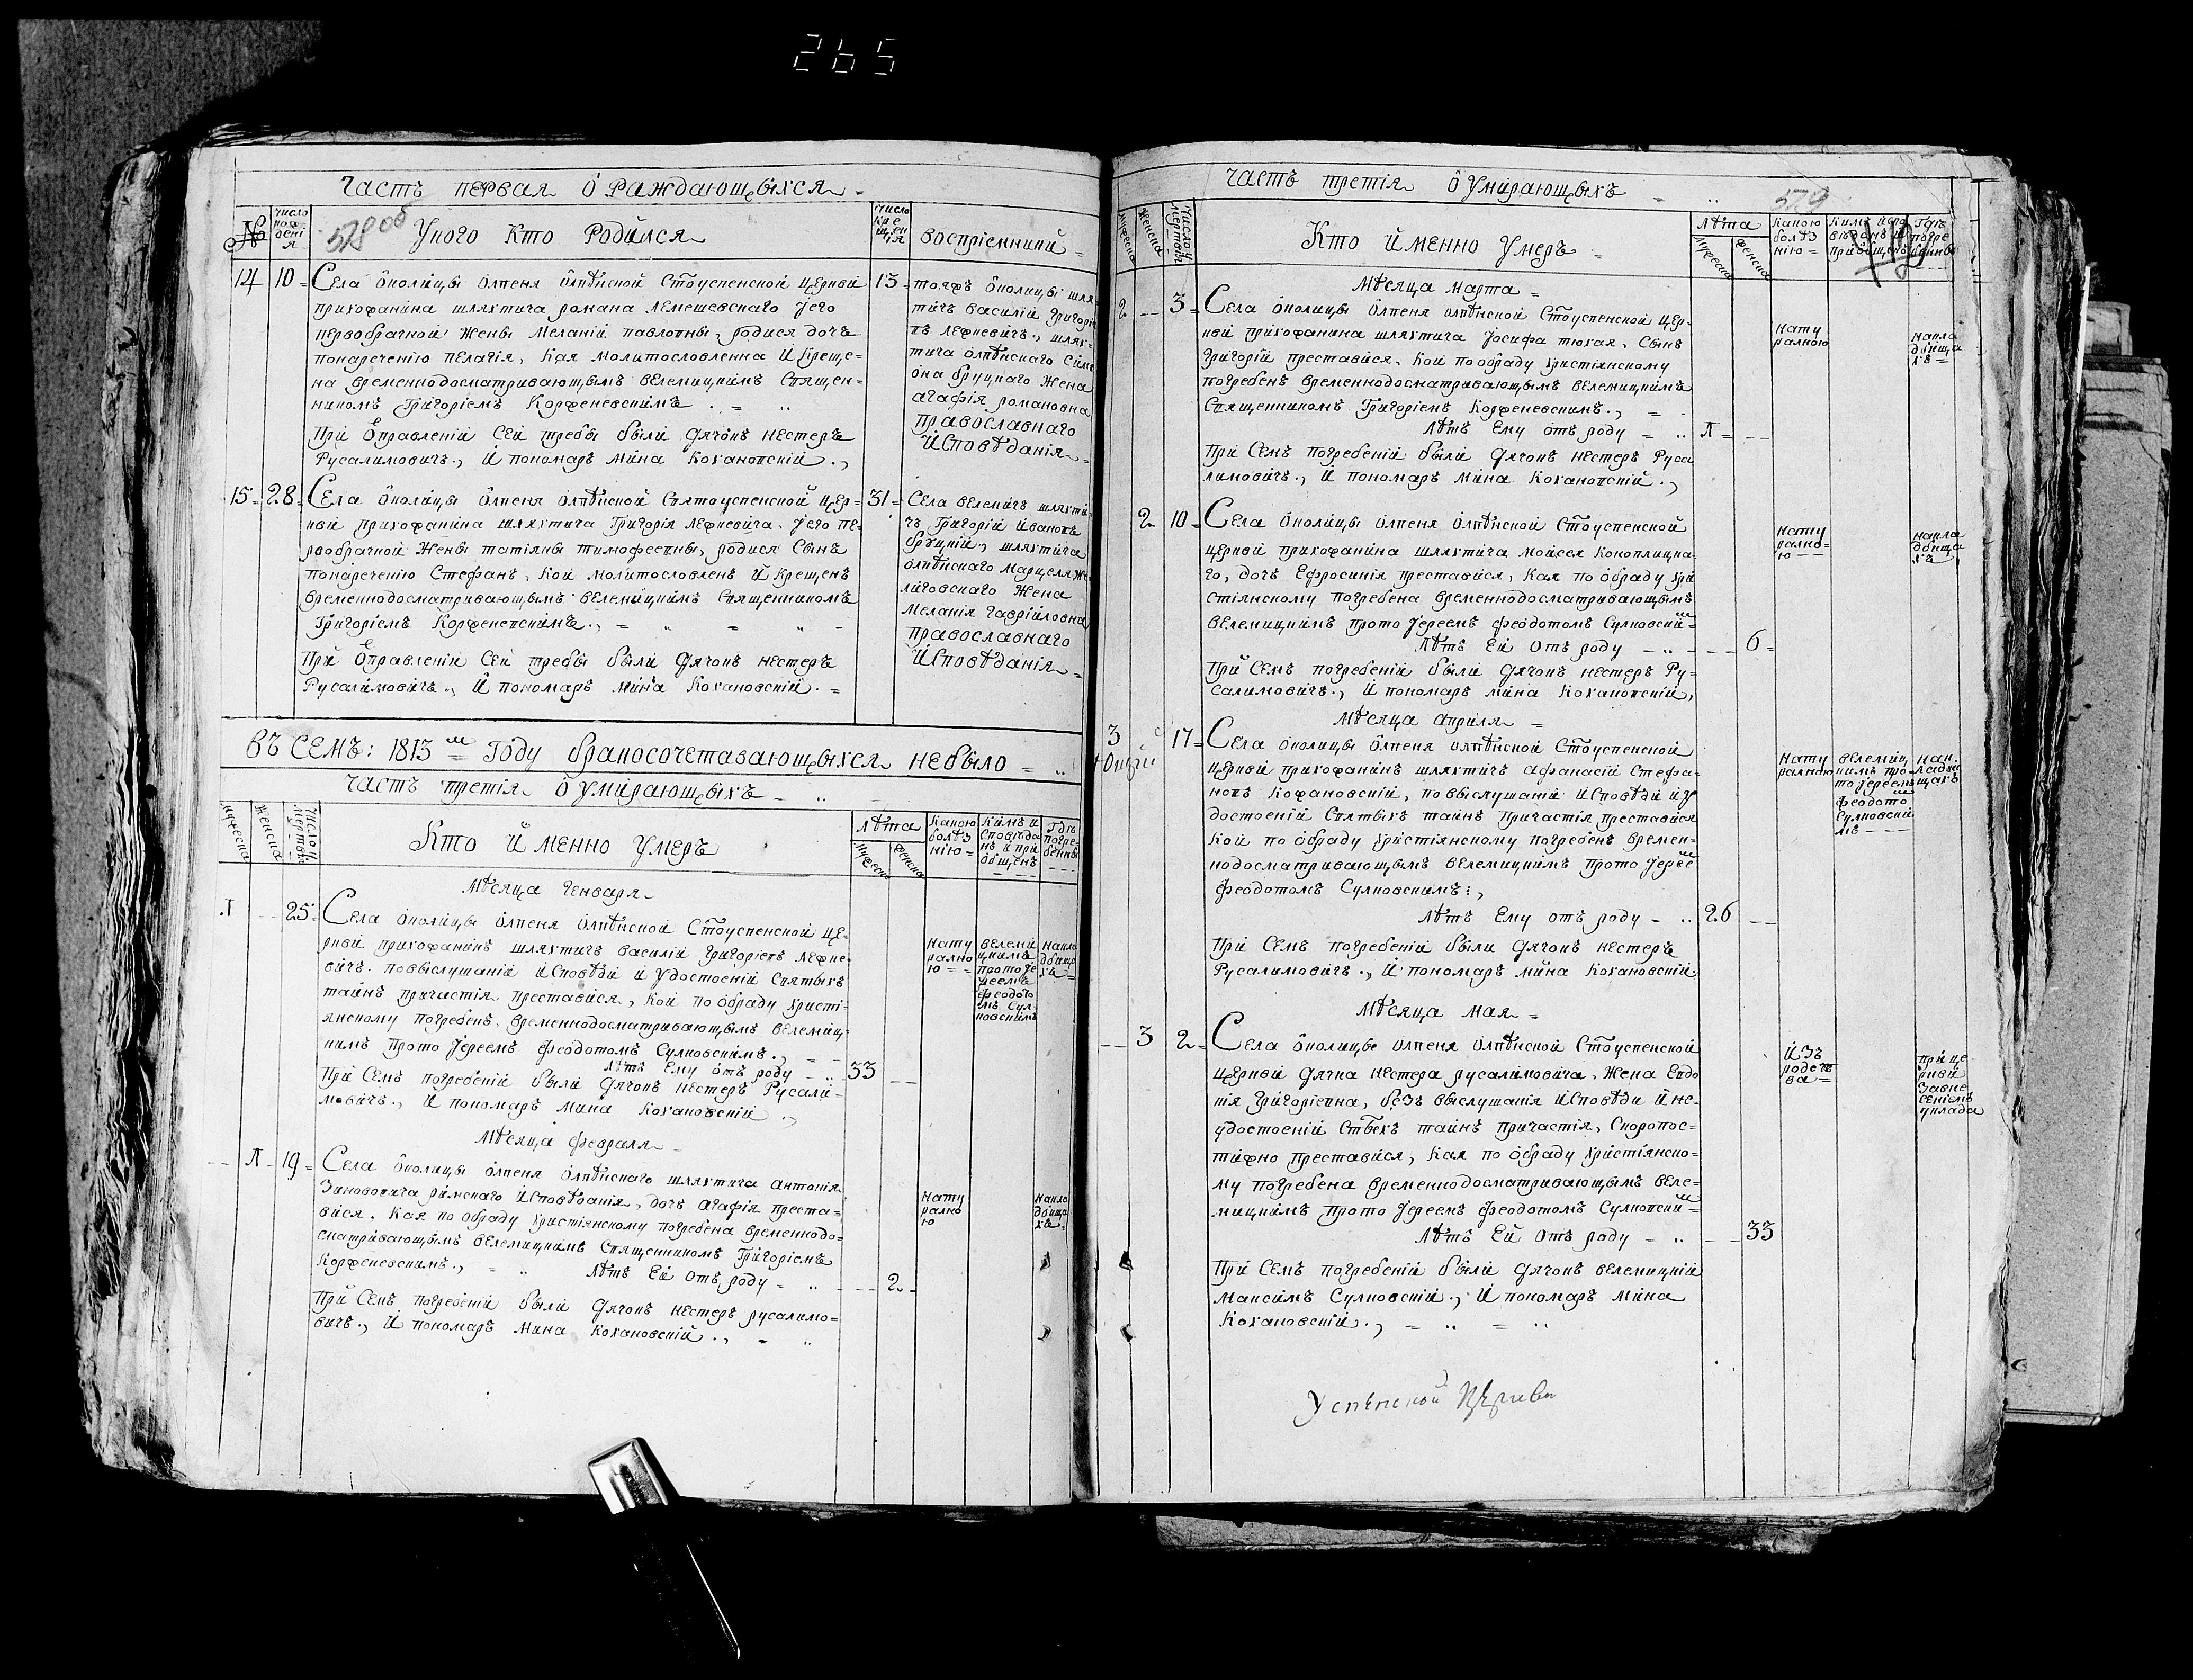 265
Часть первая о раждающыхся
№
число рождения
578 об
Уного кто родился
число крещения
воспріемники
14 10 Села околицы Олпеня Олпѣнской Стоуспенской церкви 13
прихожанина шляхтича романа Лемешевского Його
первобрачной жены Меланіи павловны, родися дочь
понареченію пелагія, кая молитословленна и креще-
на временнодосматривающымъ велемицкимъ Священ-
никомъ Григоріемъ Корженевскимъ
При отправленіи сей требы были дячокъ нестеръ
Русалимовичъ., и пономаръ Мина Кохановскій.,
тояжъ околицы шля-
тичъ василій григоріе-
въ лефкевичъ., шлях-
тича олпѣнскаго Симе
она бруцкаго жена
агафія романовна
православнаго
исповѣданія
15 28 Села околицы Олпеня Олпѣнской Святоуспенской цер- 31
кви прихожанина шляхтича Григорія лефкевича. Його пе-
рвобрачной жены татіяны тимофеевны, родися сынъ
понареченію Стефанъ, кой молитословленъ и крещенъ
временнодосматривающымъ велемицкимъ Священникомъ
Григоріемъ Корженевскимъ.,
При отправленіи сей требы были дячокъ нестеръ
Русалимовичъ., и пономаръ Мина Кохановскій.
Села велемичъ шляхти-
чъ Григорій ивановъ
бруцкій., шляхтича
олпѣнскаго марцеля же-
лиговскаго жена
Меланія гаврійловна
православнаго
исповѣданія
въ семъ: 1813м году бракосочетавающыхся небыло
Часть третія о умирающыхъ
мужеска
женска
число умертвія
Кто именно умеръ
лѣта
мужеска
женска
Какою болѣзнію
кимъ исповѣданъ и пріобщенъ
Гдѣ погребенны
Мѣсяца Генваря
1 25 Села околицы олпеня олпѣнской Стоуспенской це-
ркви прихожанинъ шляхтичъ василій григоріевъ лефке-
вичъ. повыслушаніи исповѣди и удостоеніи святыхъ
тайнъ причастія преставися, кой по обряду христі-
янскому погребенъ временнодосматривающымъ велемиц-
кимъ Прото Іереемъ феодотомъ Сулковскимъ.,
лѣтъ Ему отъ роду 33
При семъ погребеніи были дячокъ нестеръ Русали-
мовичъ., и пономаръ Мина Кохановскій.,
нату
рално
ю
велеми
цкимъ
прото Іе
реемъ
феодото
мъ Сул-
ковскимъ
накла
дбища
хъ
Мѣсяца февраля
1 19 Села околицы олпеня олпѣнскаго шляхтича антонія
Зинововича римскаго исповѣданія, дочь агафія преста-
вися. кая по обряду христіянскому погребена временнодо-
сматривающымъ велемицкимъ Священникомъ Григоріемъ
Корженевскимъ., лѣтъ Ей отъ роду 2
При семъ погребеніи были дячокъ нестеръ русалимо-
вичъ., и пономаръ Мина Кохановскій.,
нату
рално
ю
накла
дбища
хъ
Часть третія о умирающыхъ
579
мужеска
женска
число умертвія
Кто именно умеръ
лѣта
мужеска
женска
Какою болѣзнію
Кимъ исповѣданъ и пріобщенъ
Гдѣ погребенны
Мѣсяца марта
2 3 Села околицы олпеня олпѣнской Стоуспенской цер-
кви прихожанина шляхтича Іосифа тюхая, сынъ
григорій преставися, кой пообряду христіянскому
погребенъ временнодосматривающымъ велемицкимъ
Священникомъ Григоріемъ Корженевскимъ.,
лѣтъ Ему отъ роду 1
При семъ погребеніи были дячокъ нестеръ Руса
лимовичъ., и пономаръ Мина Кохановскій.,
нату
ралною
накла
дбища
хъ
2 10 Села околицы олпеня олпѣнской Стоуспенской
церкви прихожанина шляхтича мойсея коноплицка-
го, дочь Ефросинія преставися, кая по обряду хри
стіянскому погребена временнодосматривающымъ
велемицкимъ прото Іереемъ феодотомъ Сулковскимъ
лѣтъ Ей отъ роду 6
При семъ погребеніи были дячокъ нестеръ Ру-
салимовичъ., и пономаръ мина Кохановскій,
нату
рално-
ю
накла
дбища
хъ
Мѣсяца апреля
3 17 Села околицы олпеня олпѣнской Стоуспенской
церкви прихожанинъ шляхтичъ афанасій Стефа-
новъ Кожановскій, повыслушаніи исповѣди и у
достоеніи святыхъ тайнъ причастія преставися
кой по обряду христіянскому погребенъ времен-
нодосматривающымъ велемицкимъ прото Іерее м
феодотомъ Сулковскимъ:,
лѣтъ Ему отъ роду 26
При семъ погребеніи были дячокъ нестеръ
Русалимовичъ., и пономаръ мина Кохановскій.
нату
ралною
велемиц
кимъ про-
то Іереемъ
феодото
Сулковски
мъ
нак-
ладби
щахъ
Мѣсяца мая
3 2 Села околицы олпеня олпѣнской Стоуспенской
церкви дячка нестера русалимовича. жена Евдо
кія григоріевна, безъ выслушанія исповѣди и не-
удостоеніи Ствхъ тайнъ причастія, скоропос-
тижно преставися, кая по обряду христіянско-
му погребена временнодосматривающымъ веле-
мицкимъ прото Іереемъ феодотомъ Сулковскимъ
лѣтъ Ей отъ роду 33
При семъ погребеніи были дячокъ велемицкій
Максимъ Сулковскій., и пономаръ Мина
Кохановскій.,
изъ
родст
ва
при це-
ркви
Успенской Церкви